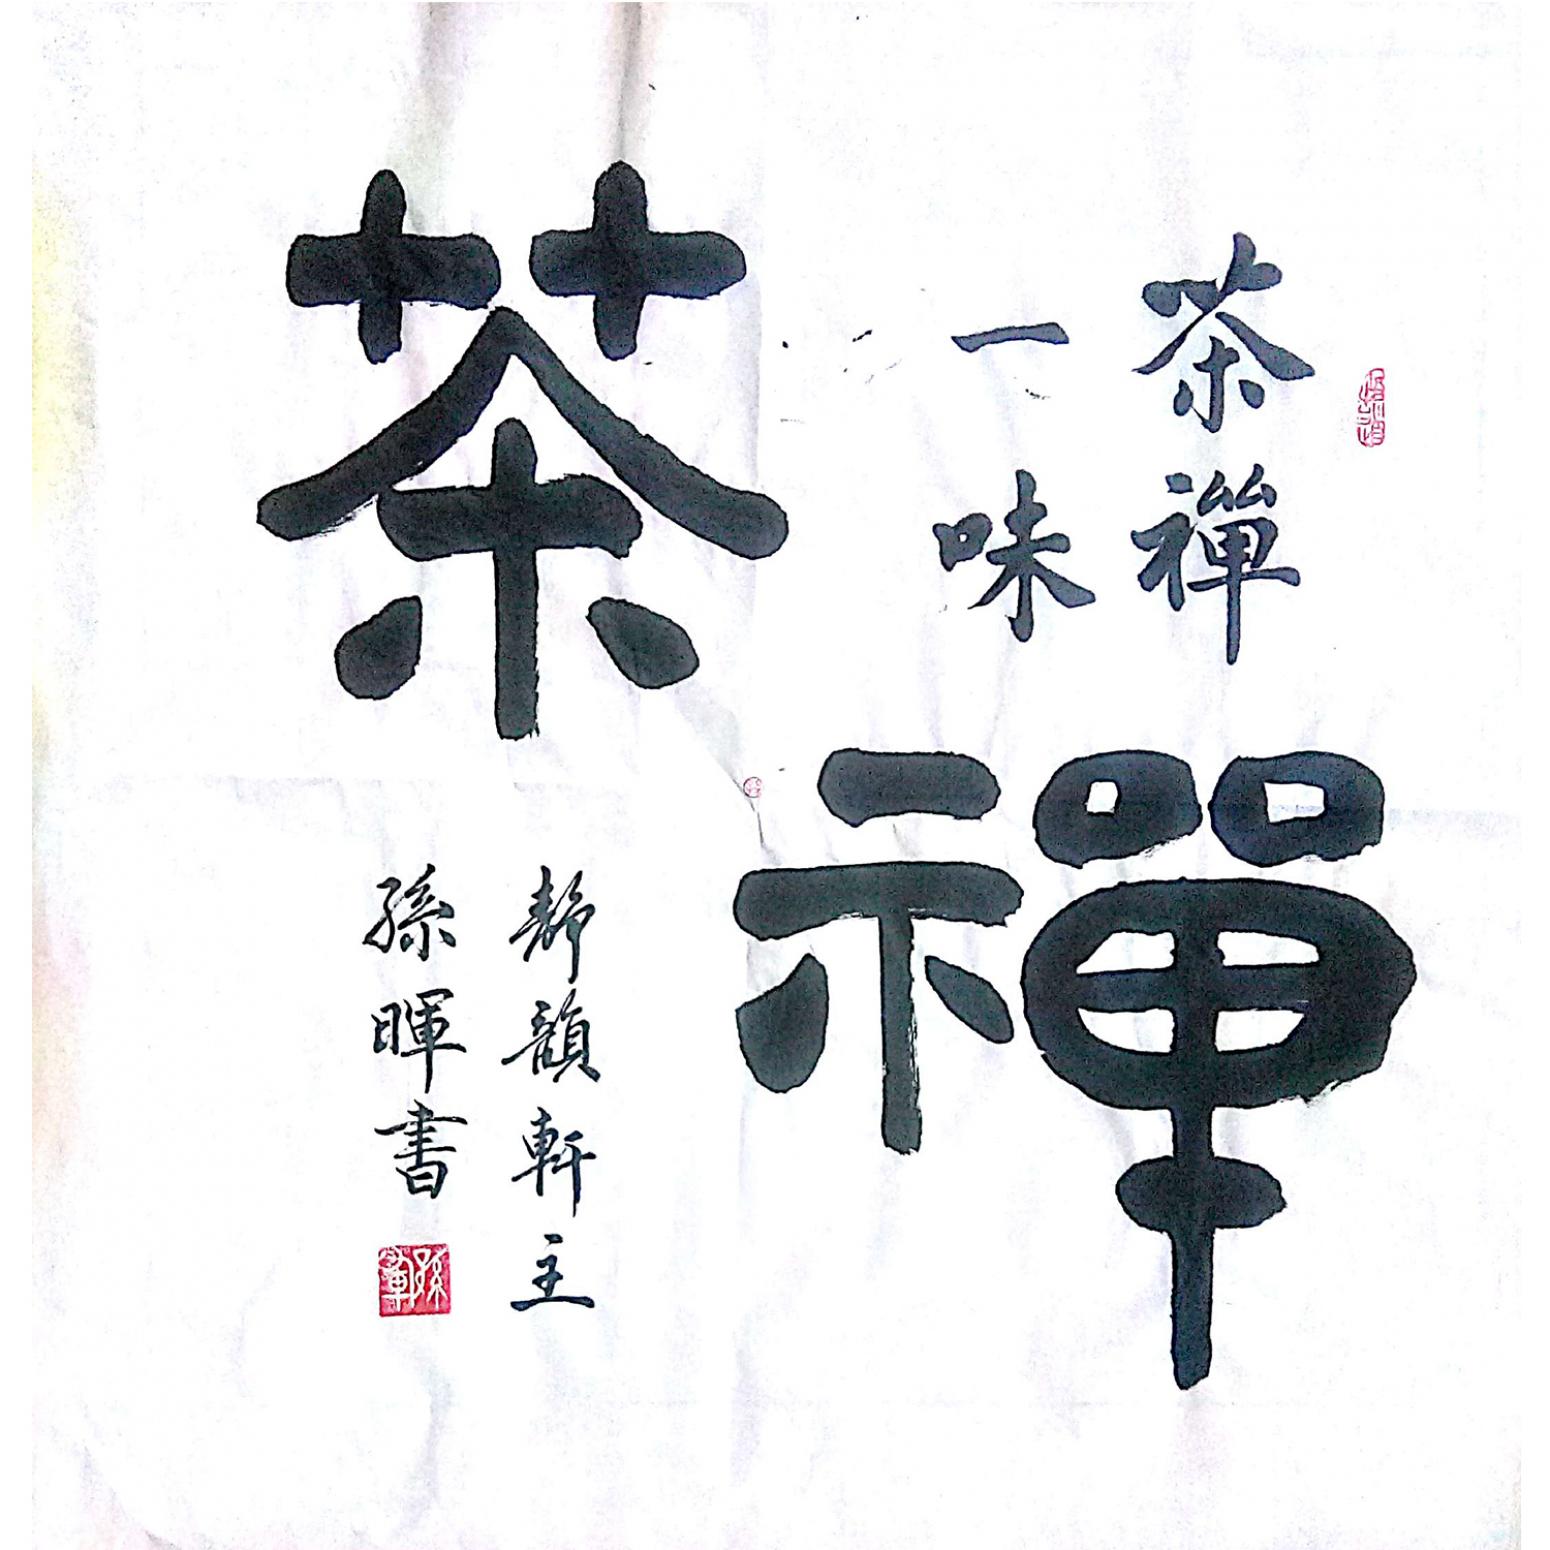 茶禪
一味
禪
茶
靜韻軒主
孫暉書